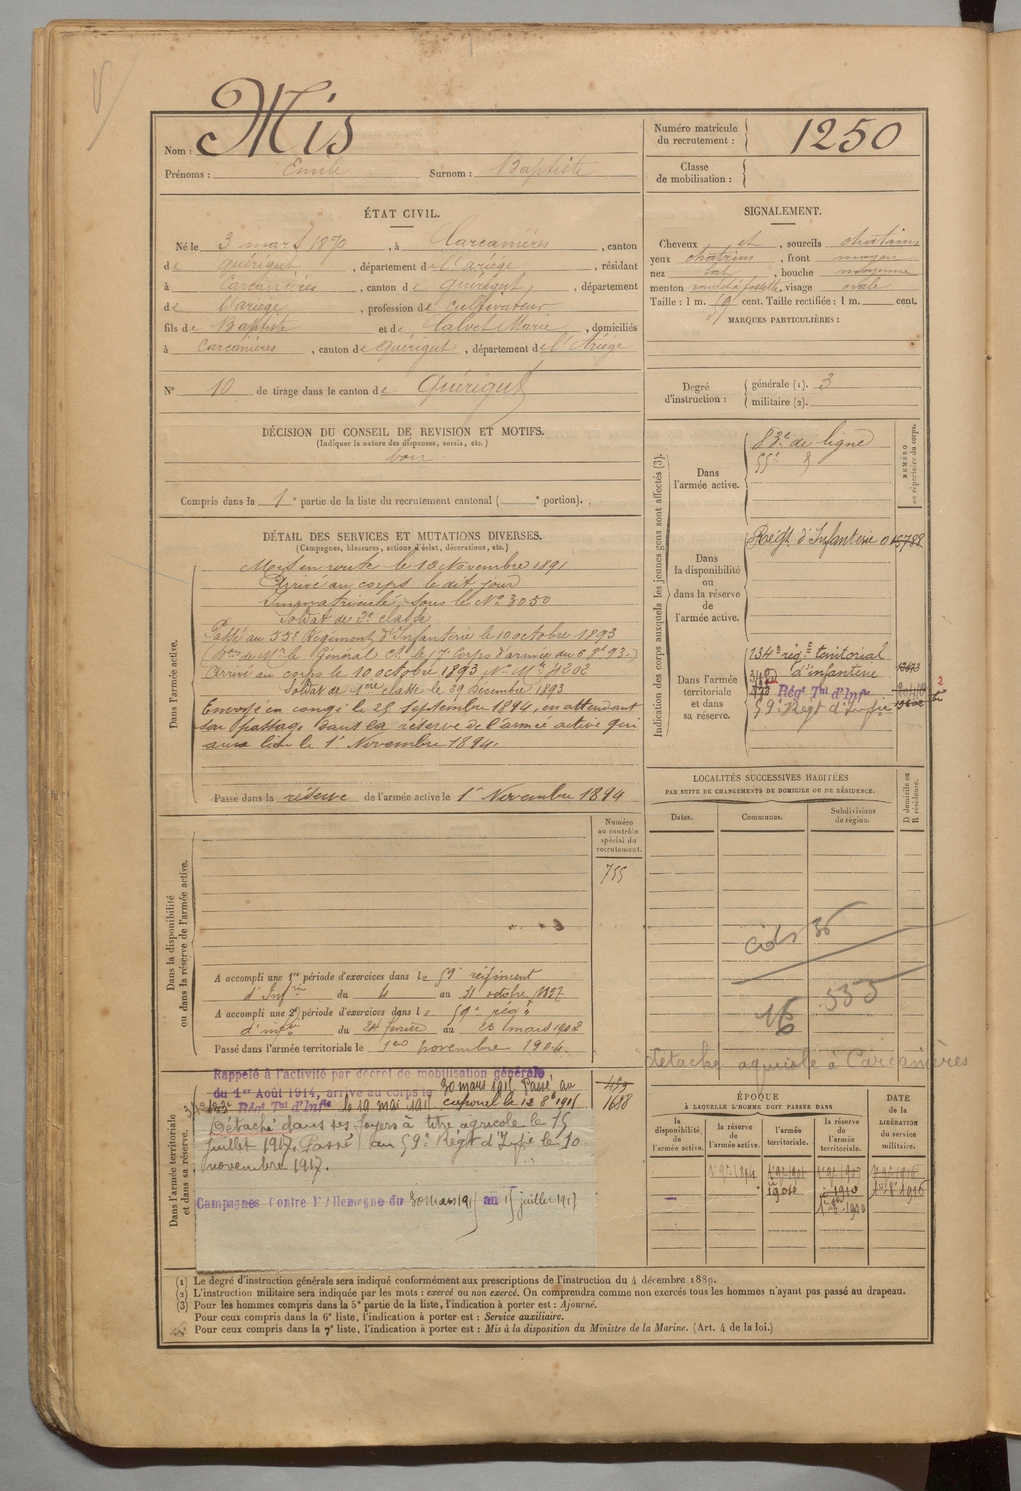 Nom : Mis
Prénoms : Emile Surnom : Baptiste
Numéro matricule du recrutement : 1250
Classe de mobilisation :
ÉTAT CIVIL.
Né le 3 mars 1870, à Carcanières, canton
de Quérigut, département de l'ariège, résidant
à Carcanières, canton de Quérigut, département
de l'ariège, profession de cultivateur
fils de Baptiste et de Calvet Marie, domiciliés
à Carcanières, canton de Quérigut, département de l'Ariège
N° 10 de tirage dans le canton de Quérigut
SIGNALEMENT.
Cheveux et, sourcils chatains
yeux chatains, front moyen
nez fort, bouche moyenne
menton rond à fossette, visage ovale
Taille : 1 m. cent. Taille rectifiée : 1 m. cent.
MARQUES PARTICULIÈRES :
Degré d'instruction : générale (1). 3
militaire (2).
DÉCISION DU CONSEIL DE REVISION ET MOTIFS.
(Indiquer la nature des dispenses, sursis, etc.)
bon
Compris dans la 1e partie de la liste du recrutement cantonal ( e portion).
Indication des corps auxquels les jeunes gens sont affectés (3).
NUMÉRO au répertoire du corps.
Dans l'armée active.
83e de ligne
55e
Dans la disponibilité ou dans la réserve de l'armée active.
Régt. d'Infanterie
Dans l'armée territoriale et dans sa réserve.
134e rég. territorial
d'infanterie
Régt Tal d'Infie
59e Régt d'Infie
DÉTAIL DES SERVICES ET MUTATIONS DIVERSES.
(Campagnes, blessures, actions d'éclat, décorations, etc.)
Dans l'armée active.
Mis en route le 13 Novembre 1891
Arrivé au corps le dit jour
Immatriculé sous le No 3050
Soldat de 2e classe
Passé au 55e Régiment d'Infanterie le 10 octobre 1893
(Don de Mr le Général Ct le 17 Corps d'armée du 6 8bre 93.)
Arrivé au corps le 10 octobre 1893 No Mle 4202
Soldat de 1ère classe le 29 Décembre 1893
Envoyé en congé le 25 Septembre 1894, en attendant
son passage dans la réserve de l'armée active qui
aura lieu le 1r Novembre 1894.
Passé dans la réserve de l'armée active le 1r Novembre 1894
LOCALITÉS SUCCESSIVES HABITÉES
PAR SUITE DE CHANGEMENTS DE DOMICILE OU DE RÉSIDENCE.
Dates. Communes. Subdivisions de région. D domicile ou R résidence.
Numéro au contrôle spécial du recrutement.
755
Dans la disponibilité ou dans la réserve de l'armée active.
A accompli une 1re période d'exercices dans le 59e régiment
d'Infrie du 4 au 31 octobre
A accompli une 2e période d'exercices dans le 59e régt
d'infie du 24 fevrier au mars
Passé dans l'armée territoriale le 1er novembre 1904
16 535
détaché agricole à Carcanières
Dans l'armée territoriale et dans sa réserve.
Rappelé à l'activité par décret de mobilisation générale
du 1er Août 1914, arrivé au corps le 30 mars 1915. Passé au
Régt Tal d'Infie le 19 mai 1915 caporal le
Détaché dans ses foyers à titre agricole le 15
juillet 1917. Passé au 59e Régt d'Infie le 10
novembre 1917.
Campagnes Contre l'Allemagne du 30 mars 1915 au 15 juillet 1917
1688
ÉPOQUE
À LAQUELLE L'HOMME DOIT PASSER DANS
la disponibilité de l'armée active. la réserve de l'armée active. l'armée territoriale. la réserve de l'armée territoriale.
DATE de la LIBÉRATION du service militaire.
(1) Le degré d'instruction générale sera indiqué conformément aux prescriptions de l'instruction du 4 décembre 1889.
(2) L'instruction militaire sera indiquée par les mots : exercé ou non exercé. On comprendra comme non exercés tous les hommes n'ayant pas passé au drapeau.
(3) Pour les hommes compris dans la 5e partie de la liste, l'indication à porter est : Ajourné.
Pour ceux compris dans la 6e liste, l'indication à porter est : Service auxiliaire.
Pour ceux compris dans la 7e liste, l'indication à porter est : Mis à la disposition du Ministre de la Marine. (Art. 4 de la loi.)